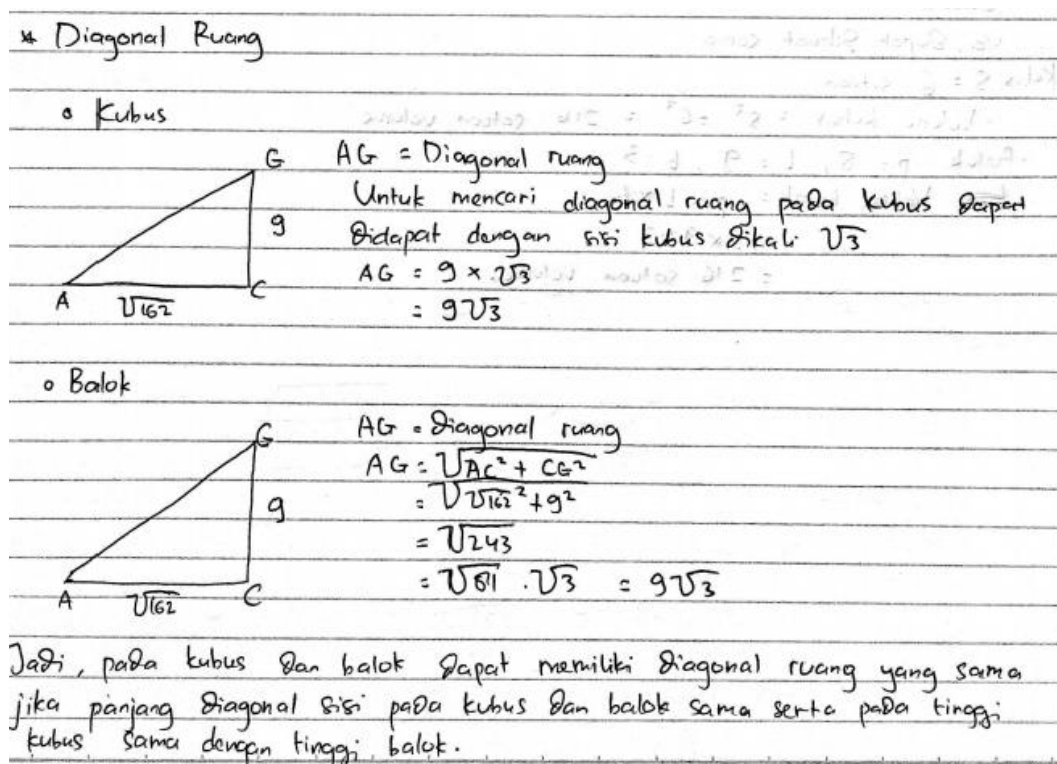 * Diagonal Ruang
o Kubus
G
g
A
√162
C
AG = Diagonal ruang
Untuk mencari diagonal ruang pada kubus dapat
didapat dengan sisi kubus dikali √3
AG = 9 × √3
= 9√3
o Balok
G
9
A
√162
C
AG = diagonal ruang
AG = √AC² + CG²
= √√162² + 9²
= √243
= √81 . √3 = 9√3
Jadi, pada kubus dan balok dapat memiliki diagonal ruang yang sama
jika panjang diagonal sisi pada kubus dan balok sama serta pada tinggi
kubus sama dengan tinggi balok.